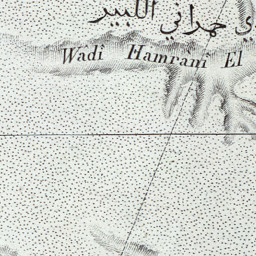 ي حمراني اللبير
Wadî Hamranî El